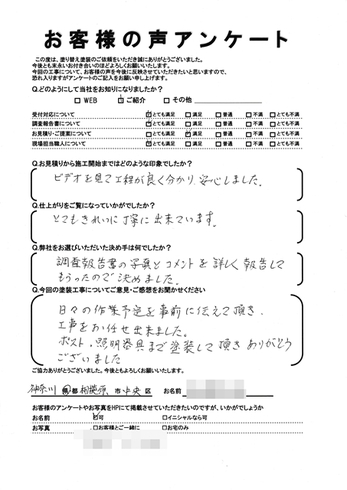 お客様の声アンケート
この度は、塗り替え塗装のご依頼をいただき誠にありがとうございました。
今後とも末永いお付き合いのほどよろしくお願いいたします。
今回の工事について、お客様の声を今後に反映させていただきたいと思いますので、
恐れ入りますがアンケートのご記入をお願い申し上げます。
Q.どのようにして当社をお知りになりましたか?
□ WEB ☑ ご紹介 □ その他
受付対応について ☑とても満足 □満足 □普通 □不満 □とても不満
調査報告書について ☑とても満足 □満足 □普通 □不満 □とても不満
お見積り・ご提案について □とても満足 ☑満足 □普通 □不満 □とても不満
現場担当職人について ☑とても満足 □満足 □普通 □不満 □とても不満
Q.お見積りから施工開始まではどのような印象でしたか?
ビデオを見て工程が良く分かり、安心しました。
Q.仕上がりをご覧になっていかがでしたか?
とてもきれいに丁寧に出来ています。
Q.弊社をお選びいただいた決め手は何でしたか?
調査報告書の写真とコメントを詳しく報告して
もらったので決めました。
Q.今回の塗装工事についてご意見・ご感想をお聞かせください
日々の作業予定を事前に伝えて頂き、
工事をお任せ出来ました。
ポスト、照明器具まで塗装して頂きありがとう
ございました
ご協力ありがとうございました。今後ともよろしくお願いいたします。
神奈川 県 都 相模原 市 中央 区 お名前
お客様のアンケートやお写真をHPにて掲載させていただきたいのですが、いかがでしょうか
お名前 □可 □イニシャルなら可
お写真 □お客様とご一緒に □お宅のみ